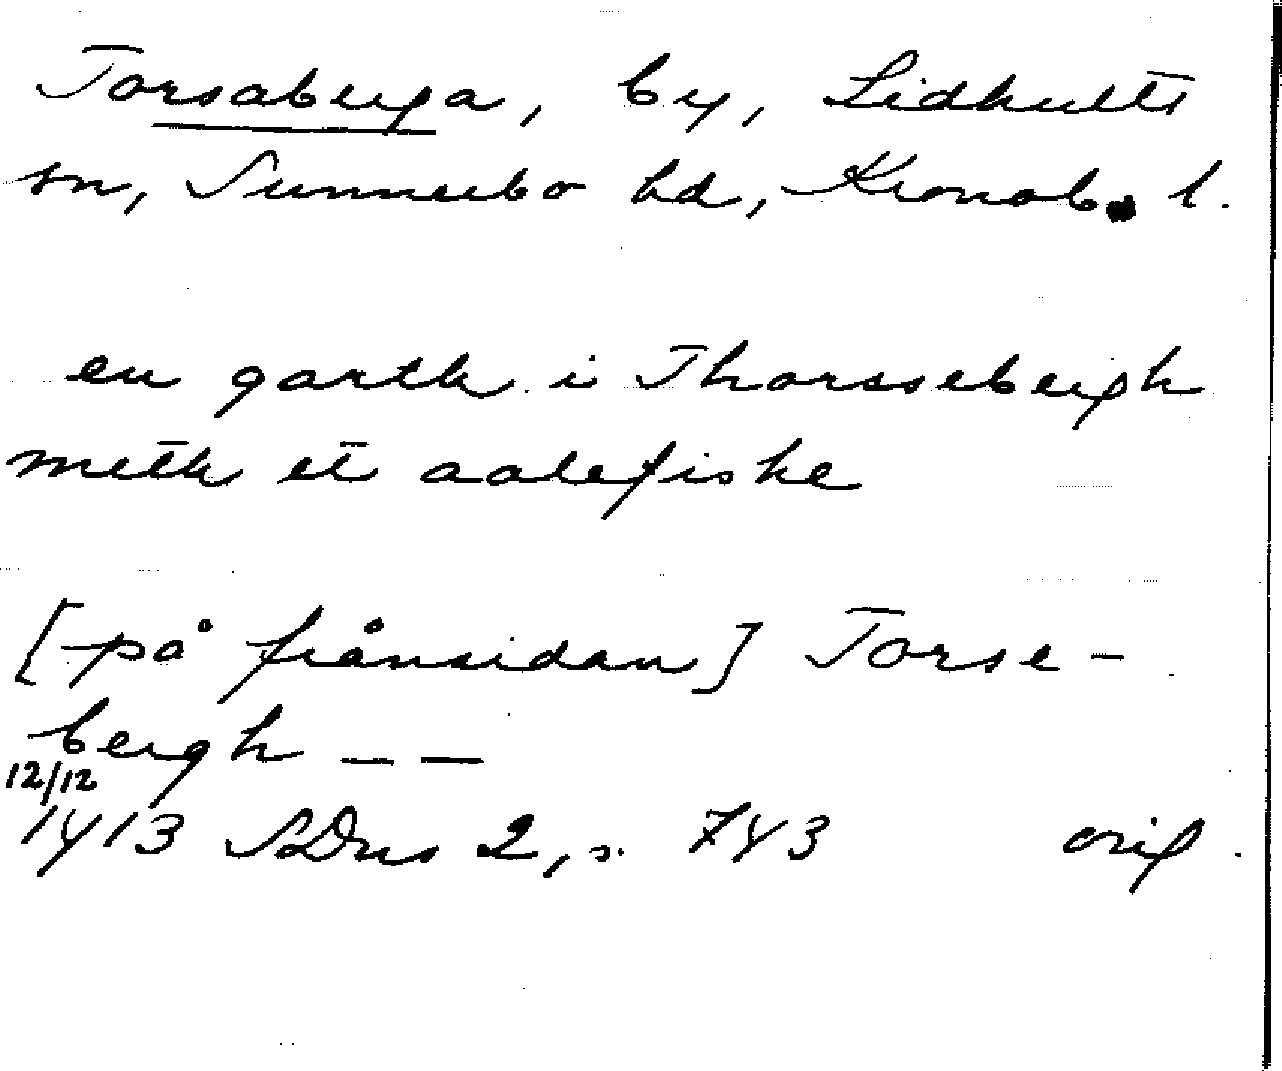 Torsaberga, by, Lidhults
sn, Sunnerbo hd, Kronob. l.
en garth i Thorssebergh
meth et aalefiske
[på frånsidan] Torse-
bergh – —
12/12
1413 SDns 2, s. 743 orig.